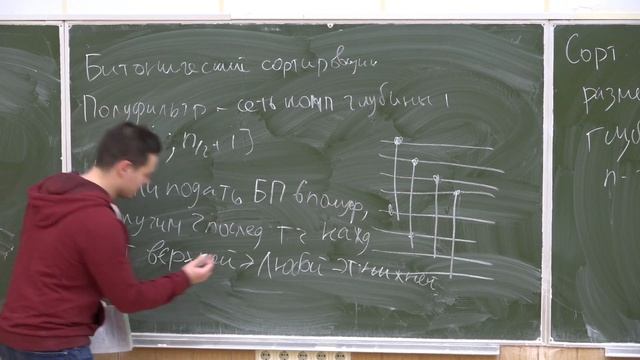 Битонический сортировщик
Полуфильтр - сеть комп глубины 1
; n/2 + 1]
ли подать БП в полуф,
лучим 2 послед т.ч кажд
верхней > любой эт нижней
Сорт
разме
глуб
n -